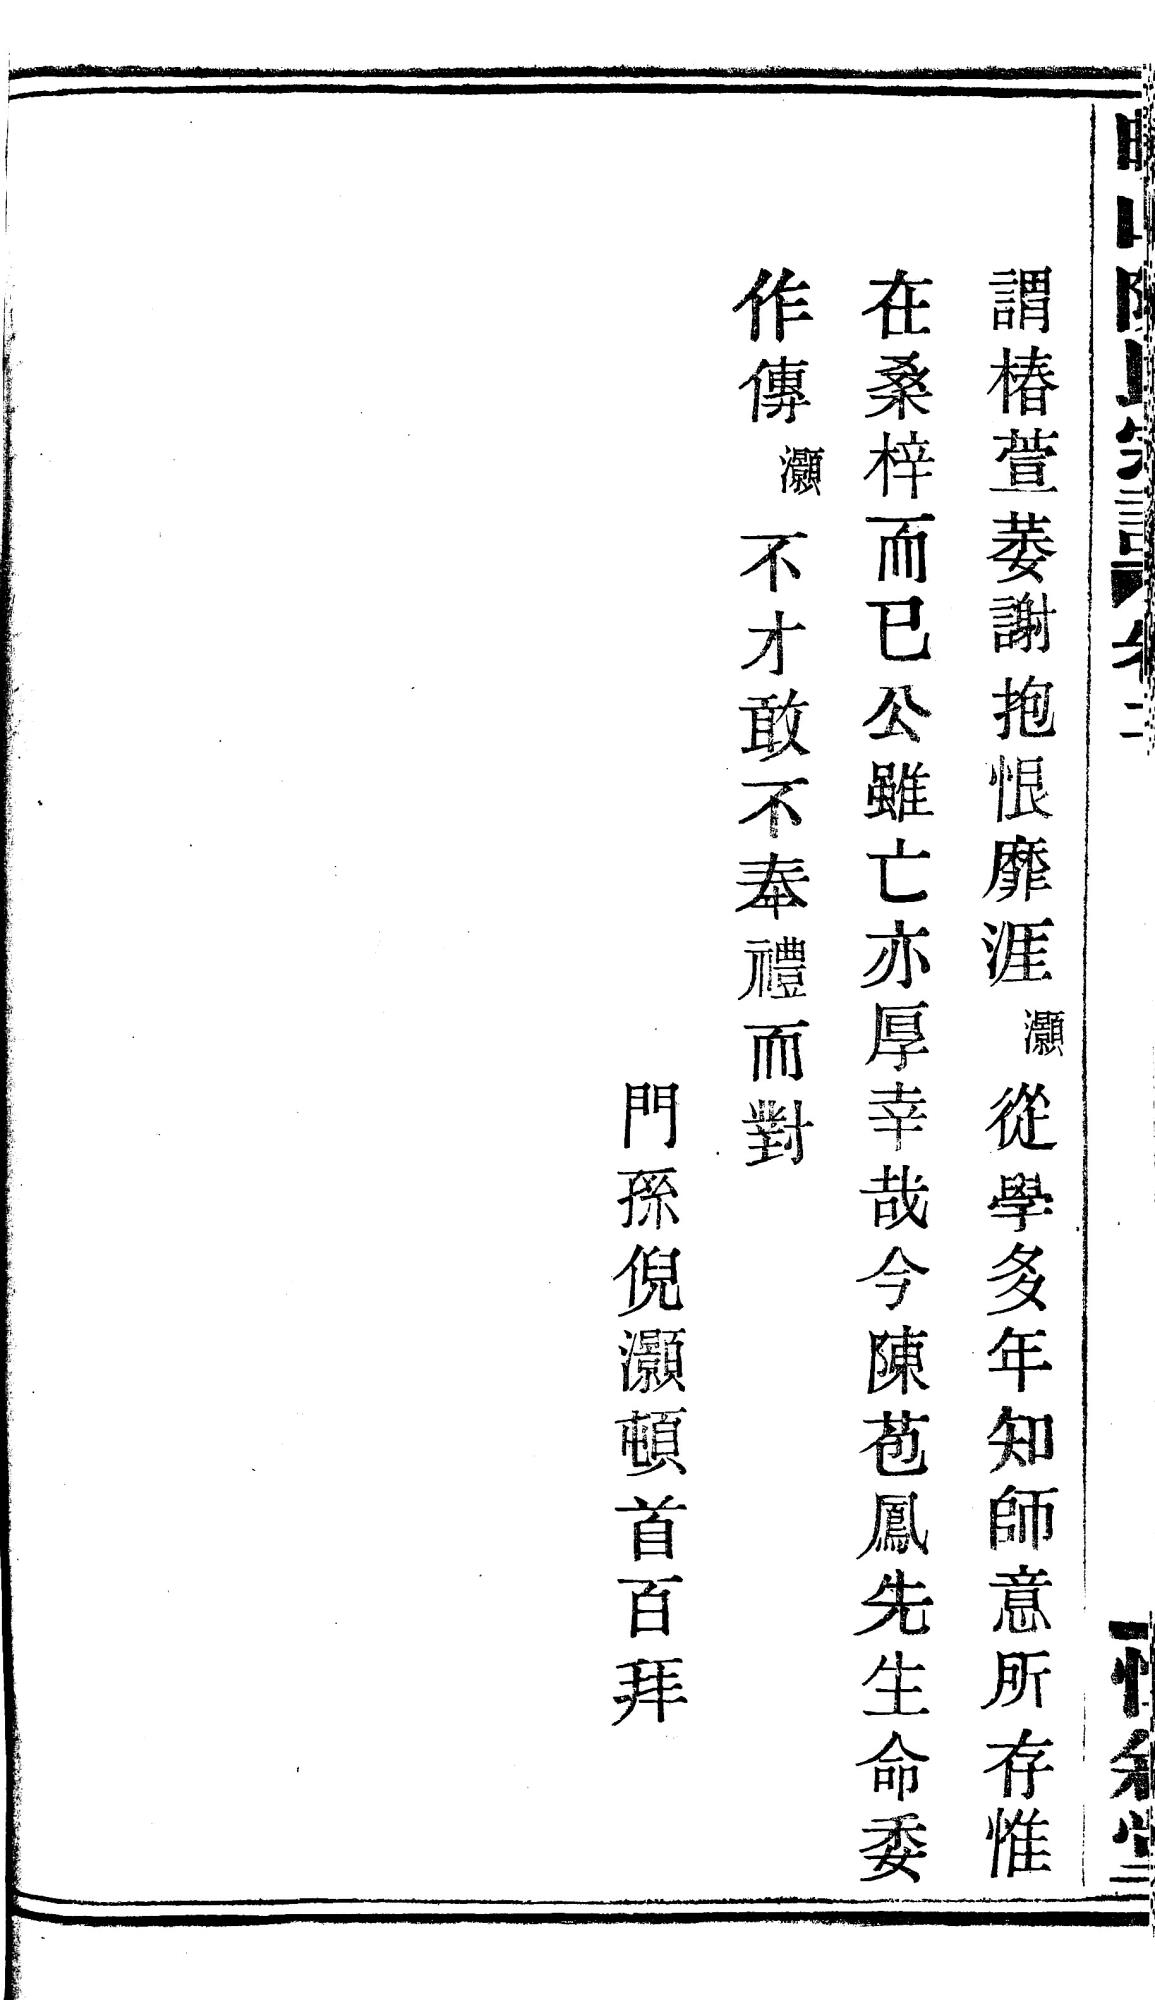 謂椿萱萎謝抱恨靡涯灝從學多年知師意所存惟
在桑梓而已公雖亡亦厚幸哉今陳苞鳳先生命委
作傳灝不才敢不奉禮而對
門孫倪灝頓首百拜